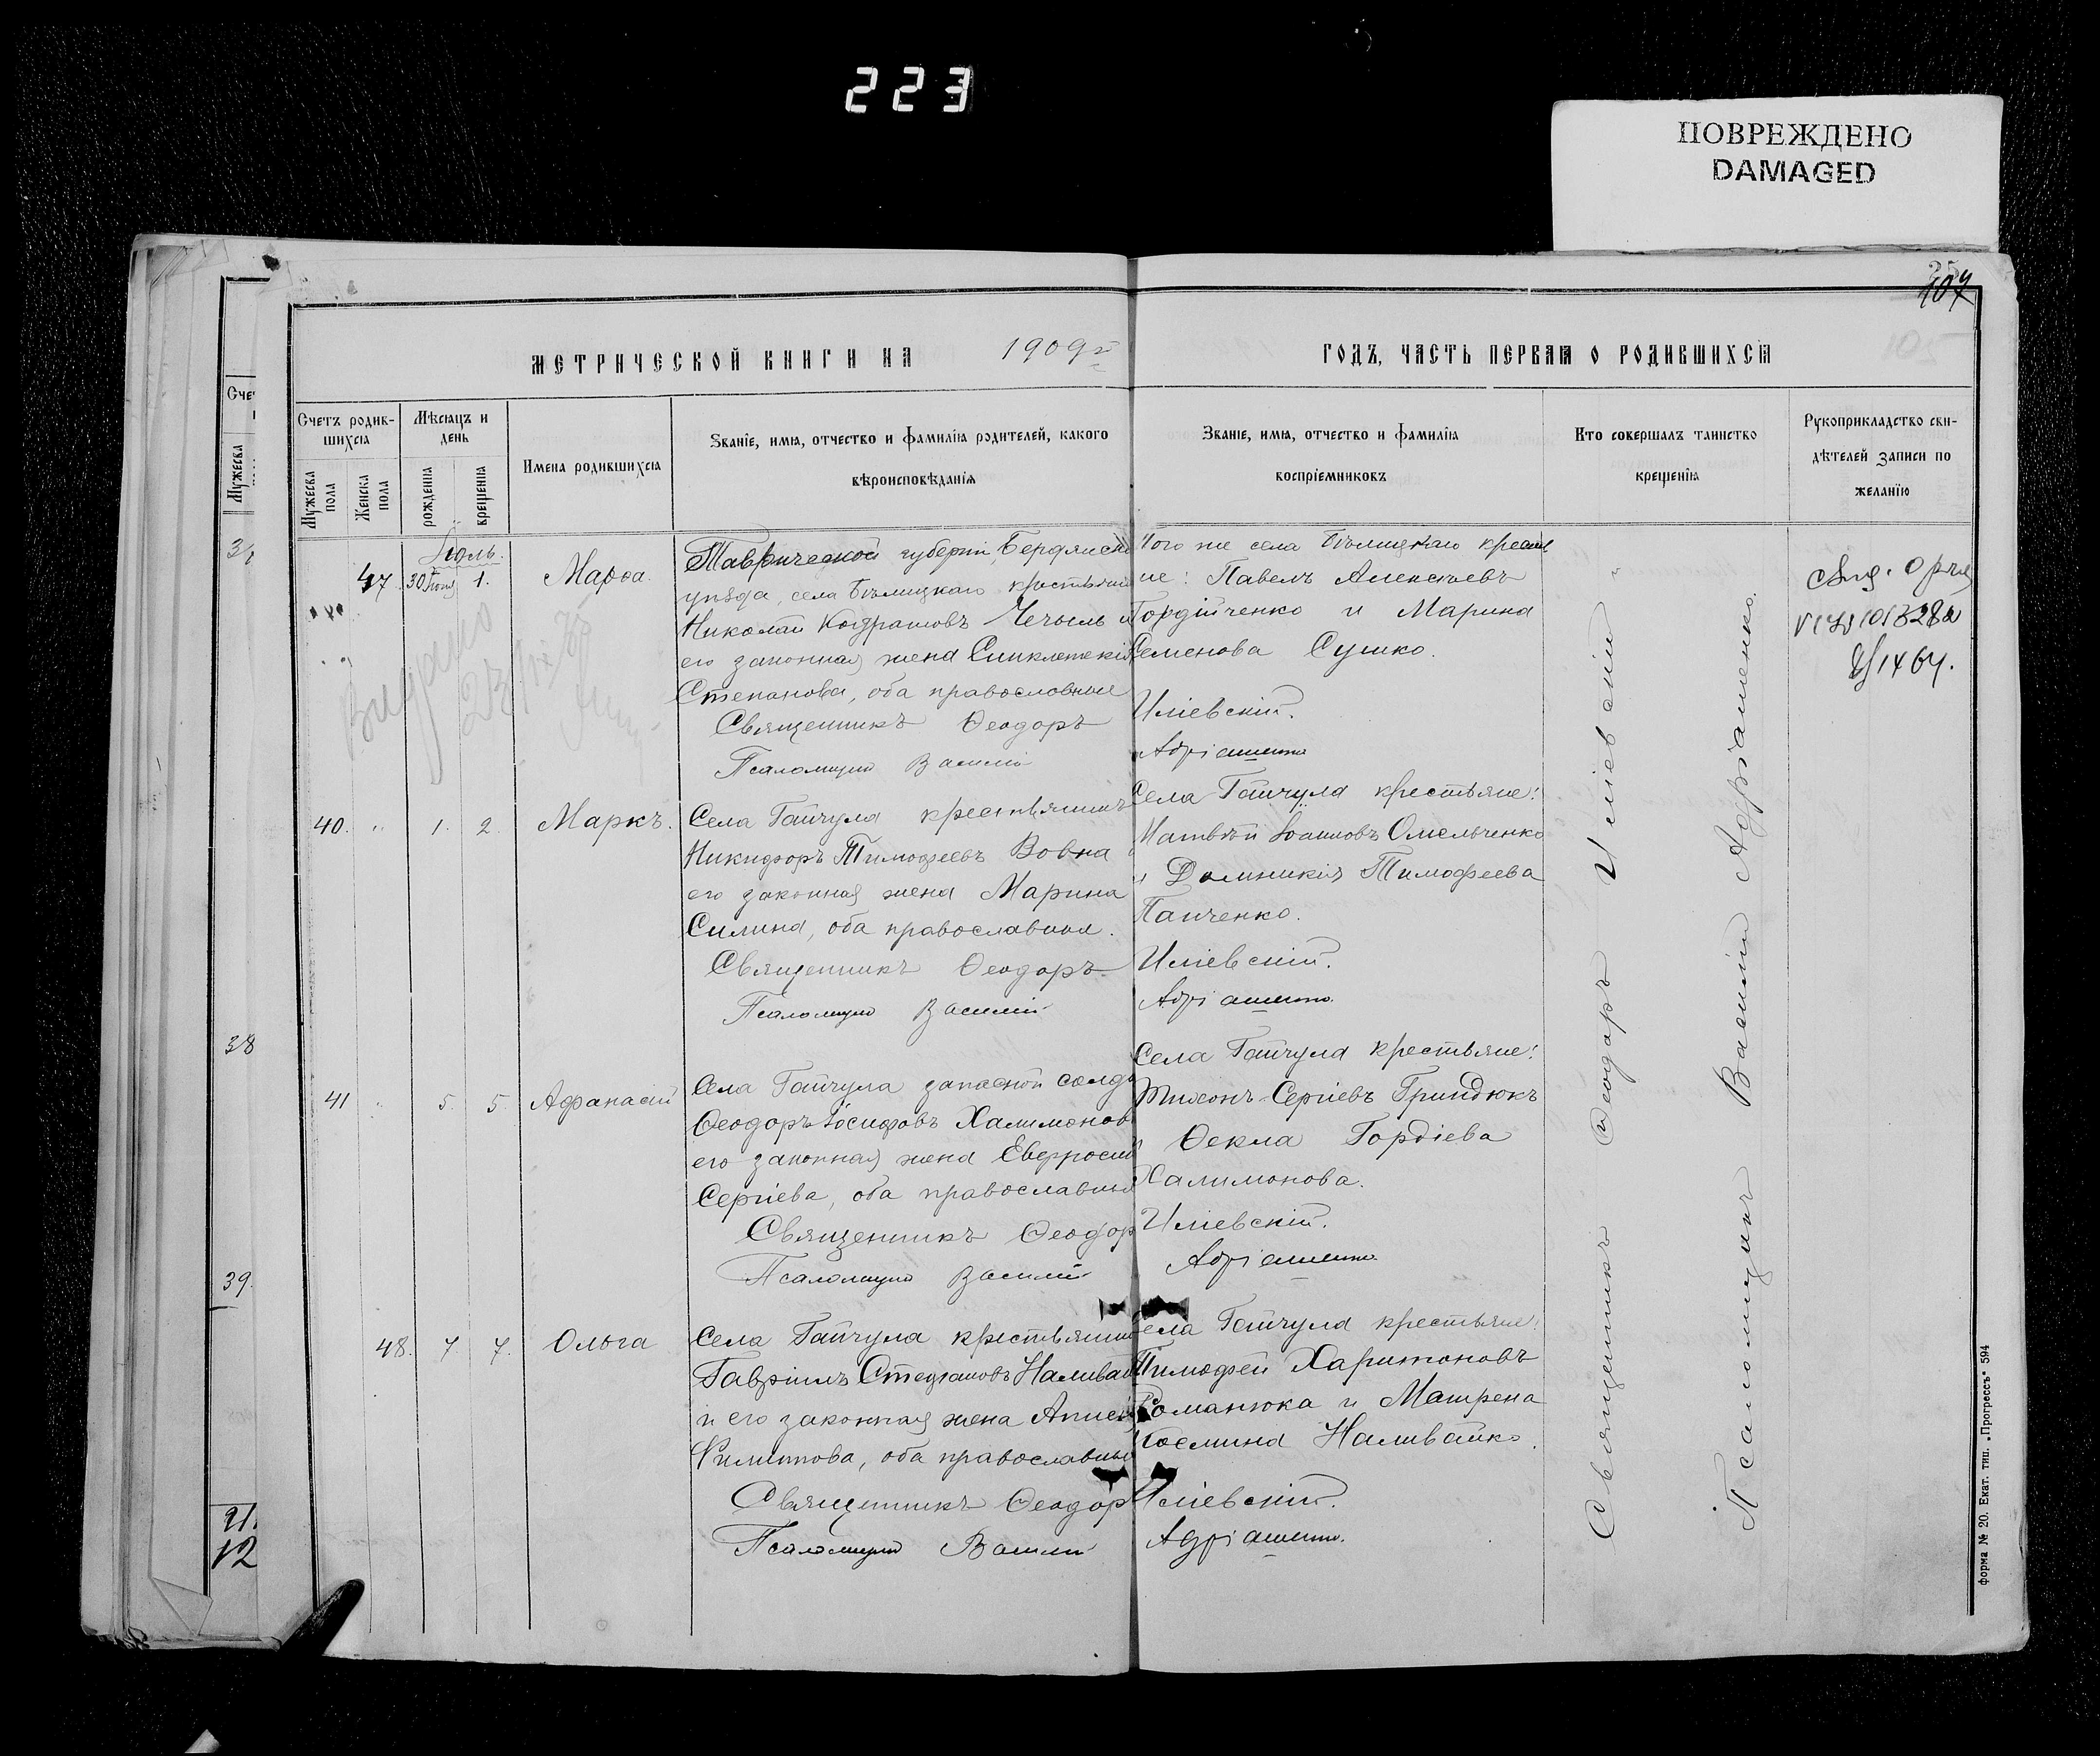 223
ПОВРЕЖДЕНО
DAMAGED
107
105
МЕТРИЧЕСКОЙ КНИГИ НА 1909й ГОДЪ, ЧАСТЬ ПЕРВАЯ О РОДИВШИХСЯ
Счетъ родив-
шихся
Мужеска пола
Женска пола
Мѣсяцъ и
день
рожденія
крещенія
Имена родившихся
Званіе, имя, отчество и фамилія родителей, какого
вѣроисповѣданія
Званіе, имя, отчество и фамилія
воспріемниковъ
Кто совершалъ таинство
крещенія
Рукоприкладство сви-
дѣтелей записи по
желанію
Іюль.
47 30 Іюня 1. Марѳа.
Таврической губерніи, Бердянска
уѣзда, села Бѣлицкаго крестьянин
Николай Кондратовъ Чечыль и
его законная жена Синклетикія
Степанова, оба православные
Священникъ Ѳеодоръ
Псаломщикъ Василій
Того же села Бѣлицкаго крестья
не: Павелъ Алексѣевъ
Гордійченко и Марина
Семенова Сушко.
Иліевскій.
Адріашенко
40. " 1. 2. Маркъ.
Села Гайчула крестьянинъ
Никифоръ Тимофеевъ Вовка
его законная жена Марина
Силина, оба православныя.
Священникъ Ѳеодоръ
Псаломщикъ Василій
Села Гайчула крестьяне:
Матвѣй Іоанновъ Омельченко
и Домникія Тимофеева
Панченко.
Иліевскій.
Адріашенко.
41 " 5. 5. Афанасій
Села Гайчула запасной солда
Ѳеодоръ Іосифовъ Халимонов
его законная жена Евфросин
Сергіева, оба православныя
Священникъ Ѳеодор
Псаломщикъ Василій
Села Гайчула крестьяне:
Тихонъ Сергіевъ Гриндюкъ
и Ѳекла Гордіева
Халимонова.
Иліевскій.
Адріашенко
48. 7. 7. Ольга
Села Гайчула крестьянин
Гавріилъ Стефановъ Наливай
и его законная жена Анисі
Филиппова, оба православны
Священникъ Ѳеодор
Псаломщикъ Василій
Села Гайчула крестьяне:
Тимофей Харитоновъ
Романюка и Матрена
Косьмина Наливайко.
Иліевскій.
Адріашенко.
Священникъ Ѳеодоръ Иліевскій
Псаломщикъ Василій Адріашенко.
Счет
Мужеска
38
39.
21.
12
форма № 20. Екат. тип. „Прогрессъ" 594